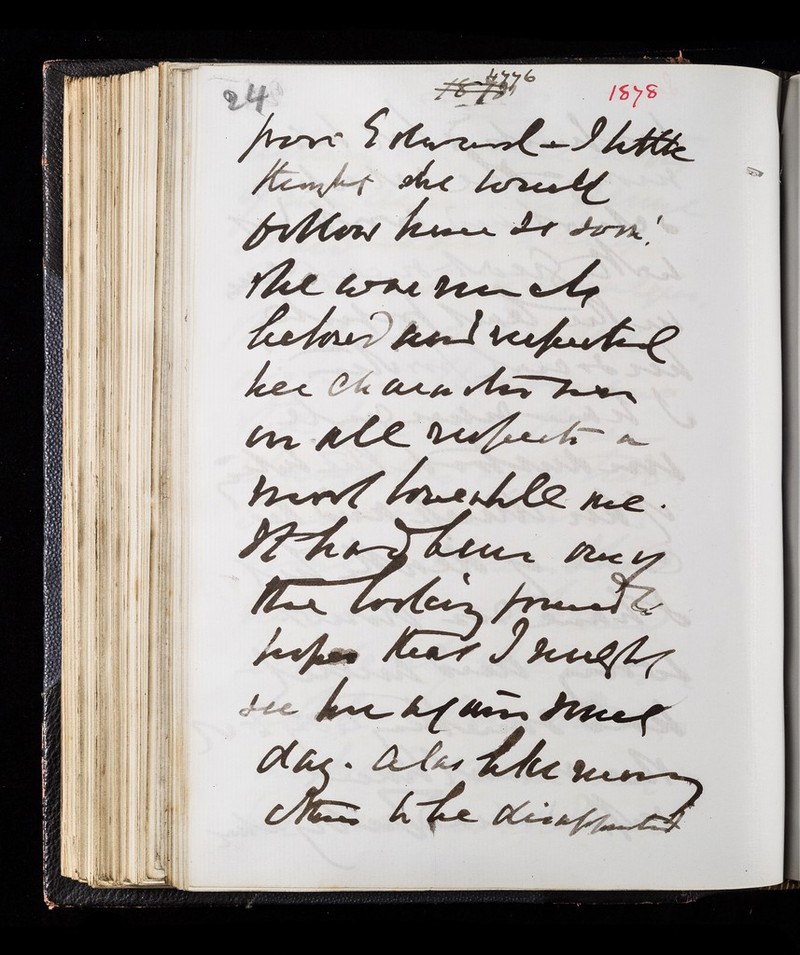 24
4776
1878
poor Edward - I little
thought she would
follow him so soon!
She was much
beloved and respected
her character was
in all respects a
most loveable one.
It had been one of
the looking forward
hopes that I might
see her again some
day. Alas like many
others to be disappointed